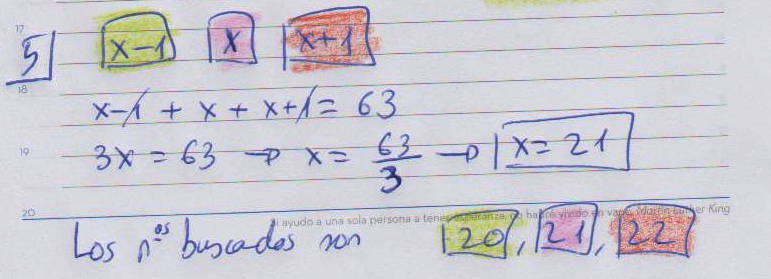 17
5 x-1 x x+1
18
x-1 + x + x+1 = 63
19
3x = 63 → x = 63/3 → x = 21
20
Si ayudo a una sola persona a tener esperanza, no habré vivido en vano. Martin Luther King
Los nºs buscados son 20, 21, 22